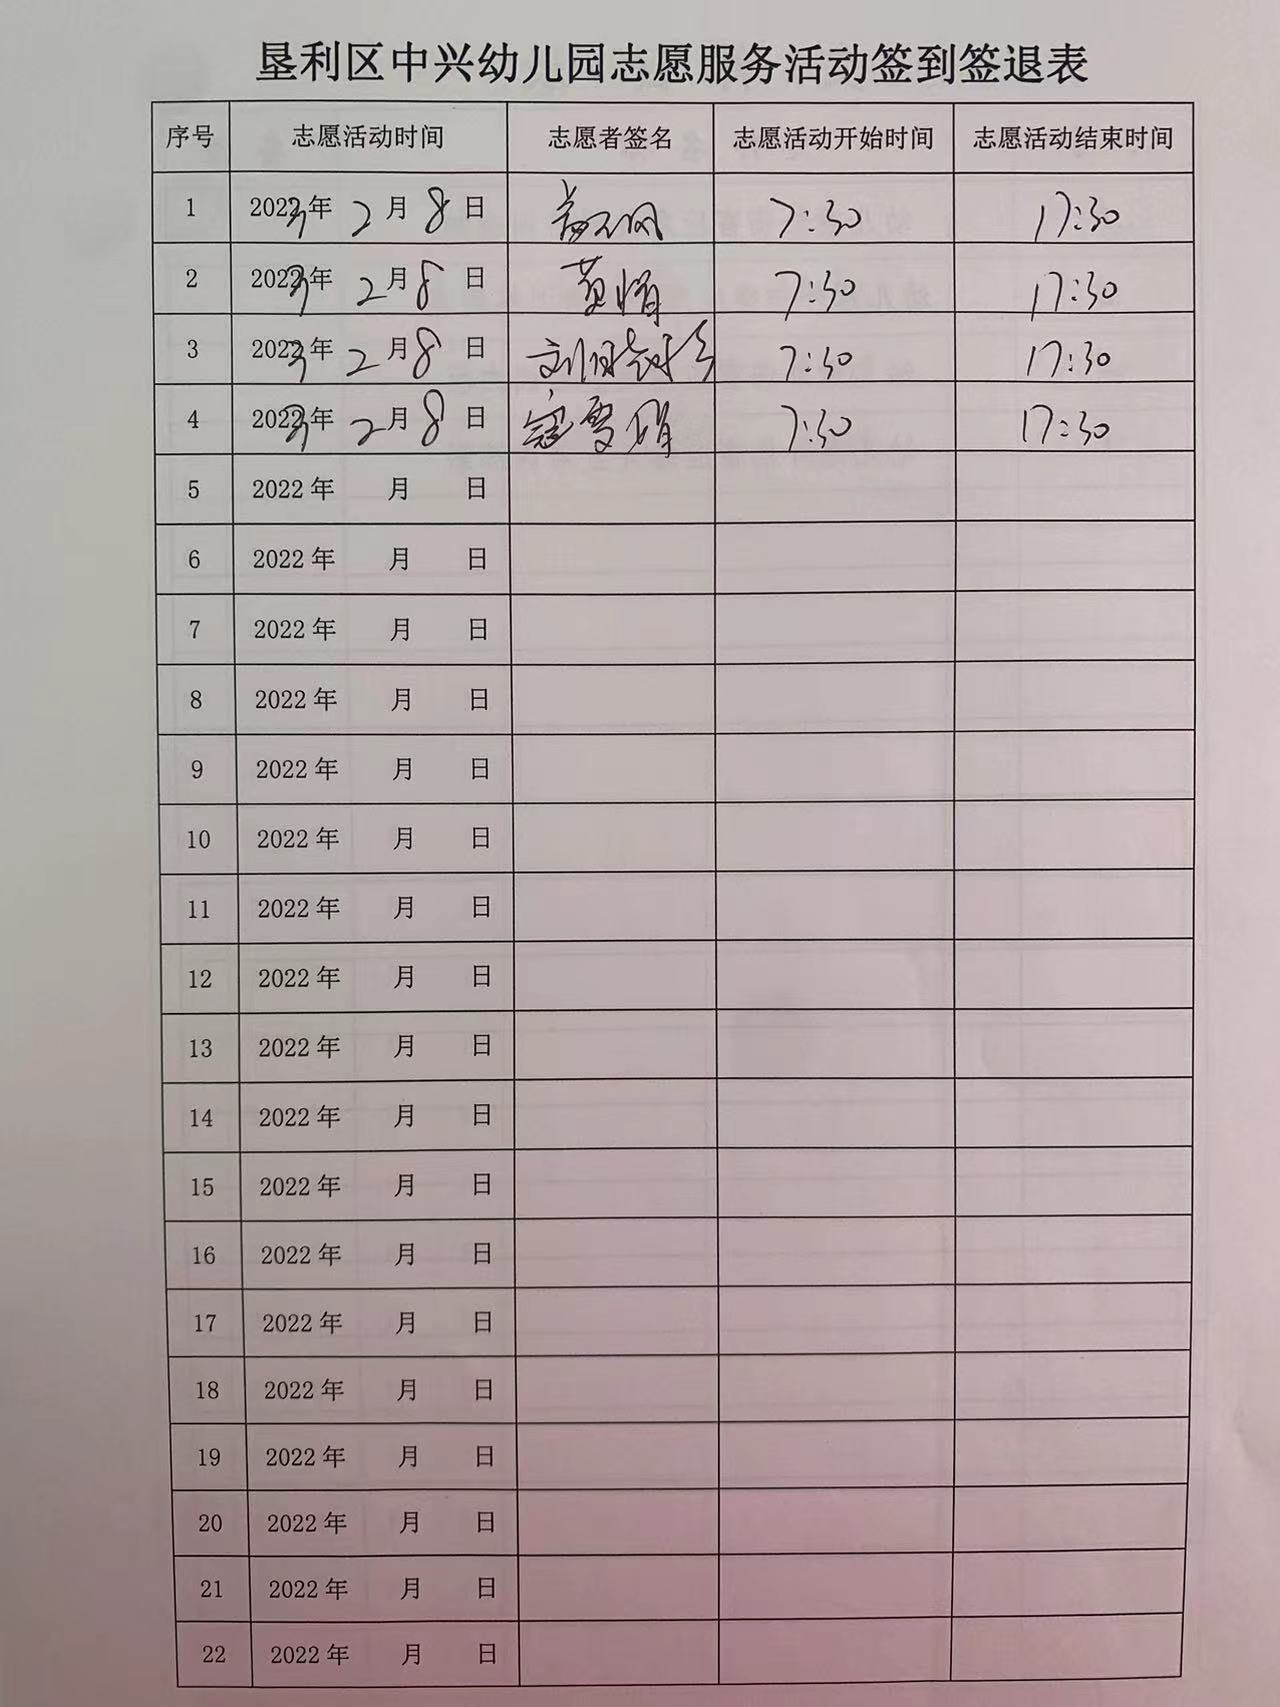 垦利区中兴幼儿园志愿服务活动签到签退表
序号 志愿活动时间 志愿者签名 志愿活动开始时间 志愿活动结束时间
1 2023年 2月 8日 7:30 17:30
2 2023年 2月 8日 黄娟 7:30 17:30
3 2023年 2月 8日 7:30 17:30
4 2023年 2月 8日 寇雪娟 7:30 17:30
5 2022年 月 日
6 2022年 月 日
7 2022年 月 日
8 2022年 月 日
9 2022年 月 日
10 2022年 月 日
11 2022年 月 日
12 2022年 月 日
13 2022年 月 日
14 2022年 月 日
15 2022年 月 日
16 2022年 月 日
17 2022年 月 日
18 2022年 月 日
19 2022年 月 日
20 2022年 月 日
21 2022年 月 日
22 2022年 月 日